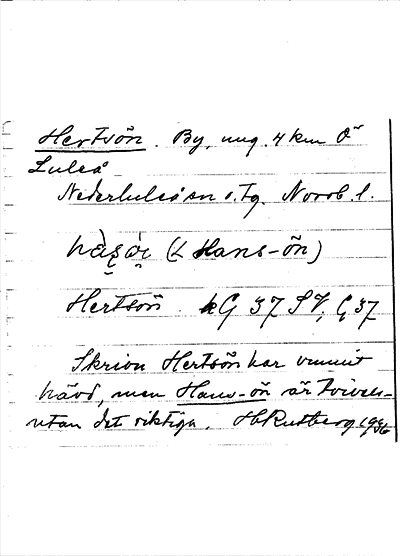 Hertsön. By, ung. 4 km Ö
Luleå
Nederluleå sn o. Tg. Norrb. l.
(< Hans-ön)
Hertsön kG 37 SV, G 37
Skrivn Hertsön har vunnit
hävd, men Hans-ön är tvivels-
utan det riktiga. HRutberg 1936